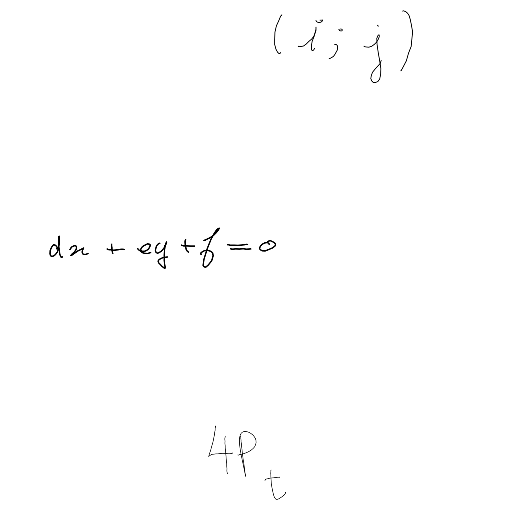 ( i ; j )
dx + ey + f = 0
4P_t